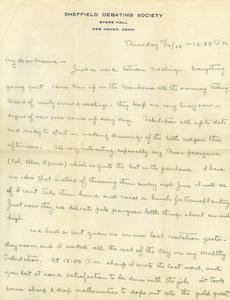 SHEFFIELD DEBATING SOCIETY
BYERS HALL
NEW HAVEN, CONN.
Thursday 4/16/08 - 12:30 P.M.
My dear Mamma -
Just a word between readings. Everything
going great. Have been up in the Greenhouse all the morning taking
record of newly arrived seedlings - they keep me very busy now -
dozens of new ones come up every day. Tabulation all up to date
and ready to start in making drawings of the little codgers this
afternoon. All very interesting, especially my Picea pungens
(Col. Blue Spruce) which is quite the best in the greenhouse. I have
an idea that instead of throwing them away next June I will see
if I can't take them home and raise a bunch for transplanting
Just now they are delicate pale green little things about an inch
high.
We had a cut given us in our last recitation yester-
day noon, and I worked all the rest of the day on my
Tabulation. At 12:00 P.M. sharp I wrote the last word, and
you bet it was a satisfaction to be done with the job. It took
some sharp & deep mathematics to dope out all the